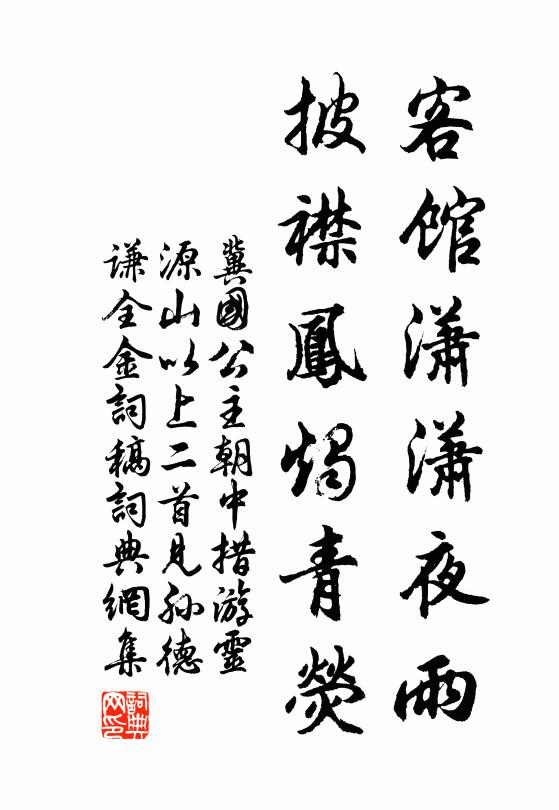 客館瀟瀟夜雨
披襟鳳燭青熒
冀國公主朝中措游靈
源山以上二首見孫德
謙全金詞稿詞典網集
詞典网印